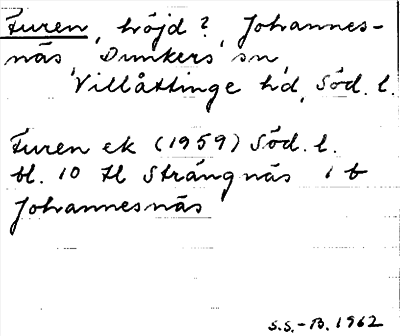 Furen, höjd?, Johannes-
näs, Dunkers sn,
Villåttinge hd, Söd. l.
Furen ek (1959) Söd. l.
bl. 10 H Strängnäs i b
Johannesnäs
S.S.-B. 1962